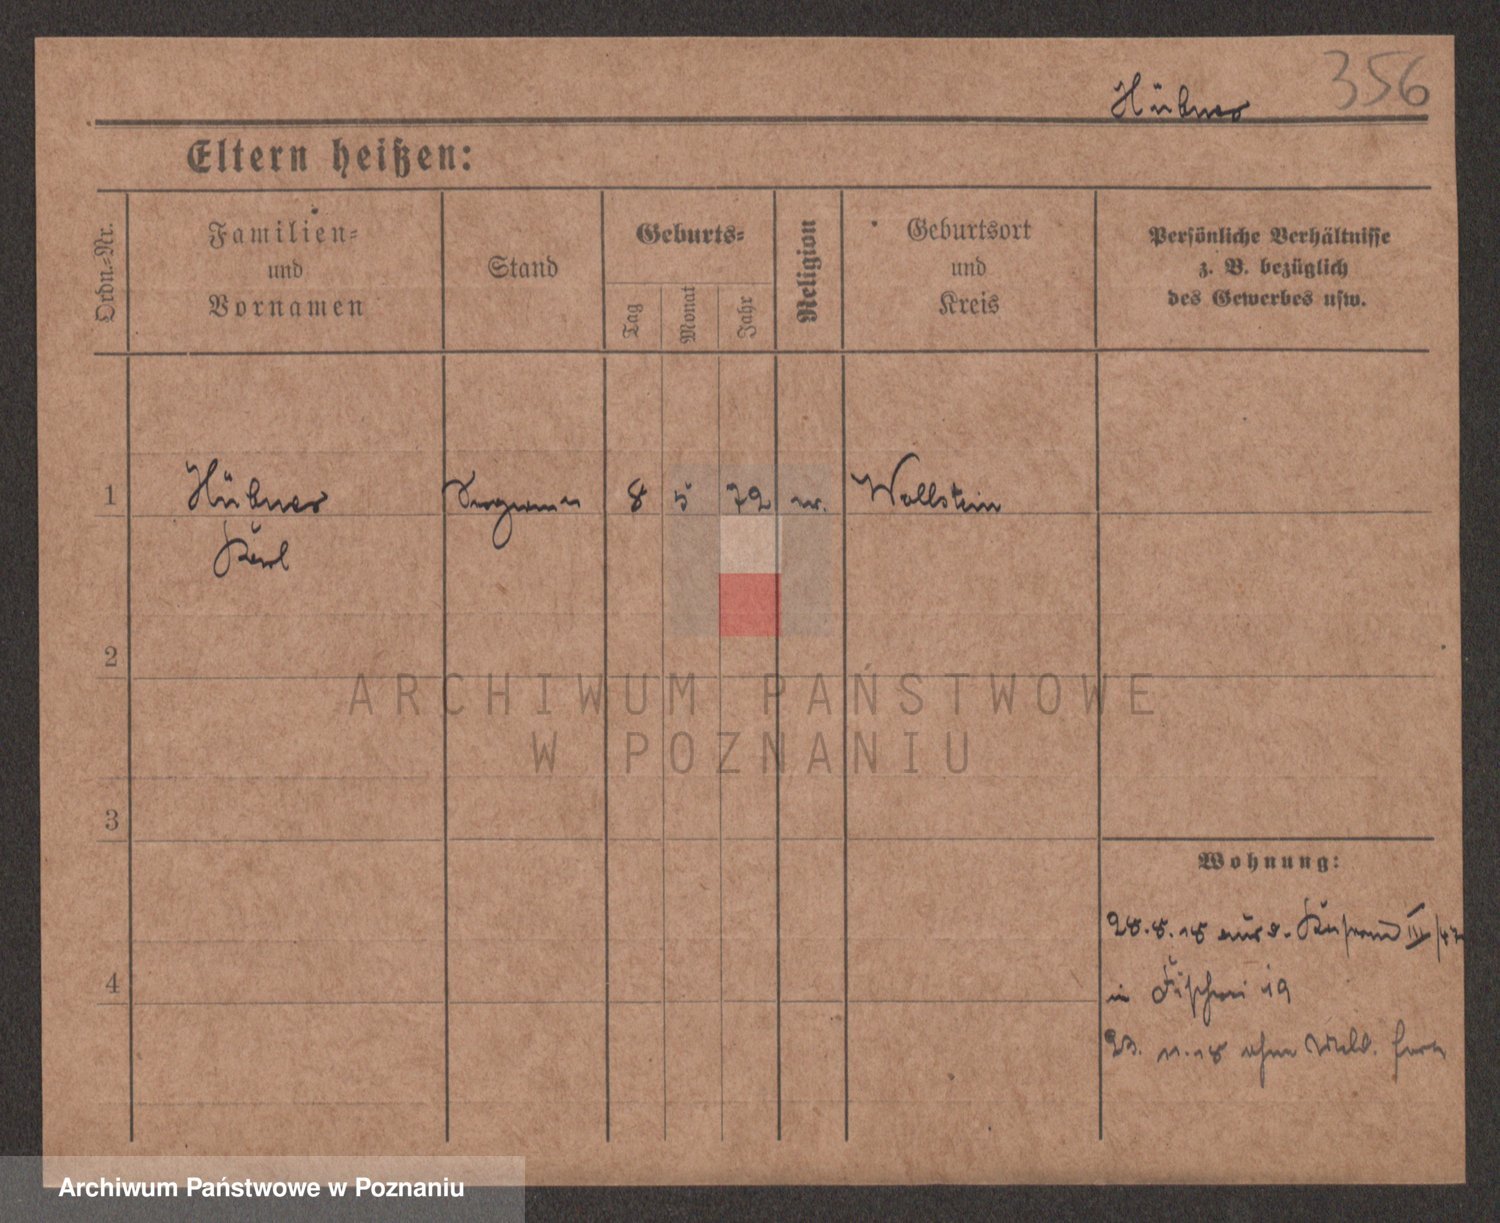 356
Hübner
Eltern heißen:
Ordn.-Nr.
Familien-
und
Vornamen
Stand
Geburts-
Tag
Monat
Jahr
Religion
Geburtsort
und
Kreis
Persönliche Verhältnisse
z. B. bezüglich
des Gewerbes usw.
1 Hübner 8 5 72 Wollstein
Karl
2
ARCHIWUM PAŃSTWOWE
W POZNANIU
3
Wohnung:
4
28.8.18 aus d. III/47
in Fischerei 19
23. 11.18 ohne Meld. fort
Archiwum Państwowe w Poznaniu